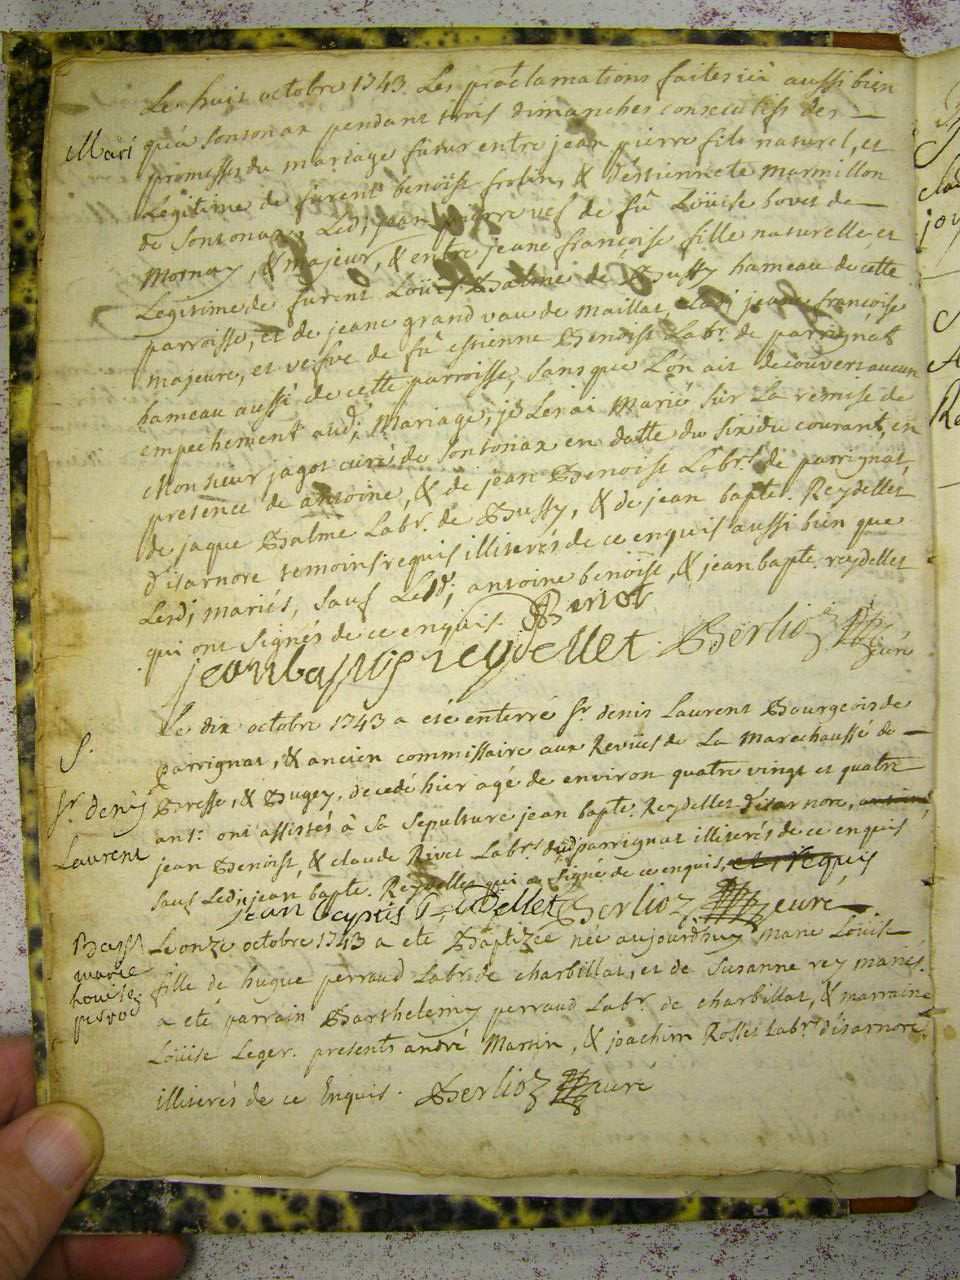 Le huit octobre 1743. Les proclamations faites ici aussi bien
qu'a Sontonax pendant trois dimanches consecutifs des
Mari
promesses du mariage futur entre jean pierre fils naturel, et
Legitime de furent benoist frolin, & d'estiennete marmillon
de Sontonax, Ledj jean pierre vef de fû Loüise bovet de
Mornay, & majeur, & entre jeane françoise fille naturelle et
Legitime de furent Loüis Balme de Bussy hameau de cette
parroisse, et de jeane grand vau de maillat, Ladj jeane françoise
majeure, et vefve de fû estienne Benoist Labr. de parrignat
hameau aussi de cette parroisse, sans que L'on ait decouvert aucun
empechement audj Mariage, je Les ai Mariés sur La remise de
Monsieur jagot curé de Sontonax en datte du six du courant, en
presence de antoine, & de jean Benoist Labrs. de parrignat,
de jaque Balme Labr. de Bussy, & de jean bapte. Reydellet
d'isarnore temoins requis illiterés de ce enquis aussi bien que
Lesdj mariés, sauf Lesdj antoine benoist, & jean bapte. reydellet
qui ont signés de ce enquis. Benoi
jean baptis reydellet Berlioz curé
Le dix octobre 1743 a eté enterré sr. denis Laurent Bourgeois de
S.
parrignat, & ancien commissaire aux Reviies de La Marechaussé de
sr. denis
Bresse, & Bugey, decedé hier agé de environ quatre vingt et quatre
ans: ont assistés à sa sepulture jean bapte. Reydellet d'isarnore,
Laurent
jean Benoist, & claude Rivet Labrs. dudj parrignat illiterés de ce enquis
sauf Ledj jean bapte. Reydellet qui a signé de ce enquis, et requis
jean baptis Reydellet Berlioz curé
Bapt
Le onze octobre 1743 a eté Baptizée née aujourdhuy marie Loüise
marie
fille de hugue perraud Labr de charbillat, et de Susanne rey mariés.
Louise
a eté parrain Barthelemy perraud Labr. de charbillat, & marraine
Loüise Leger. presents andré Martin, & joachim Rosset Labrs d'isarnore
illiterés de ce Enquis. Berlioz curé